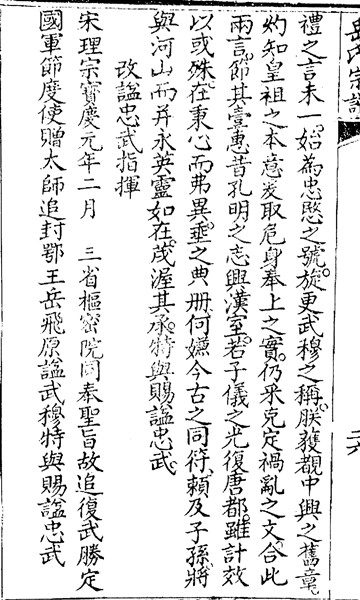 岳氏宗譜
禮之言未一始為忠愍之號旋更武穆之稱朕獲覩中興之舊章
灼知皇祖之本意爰取危身奉上之實仍采克定禍亂之文合此
兩言節其壹惠昔孔明之志興漢室若子儀之光復唐都雖計效
以或殊在秉心而弗異垂之典册何嫌今古之同符賴及子孫將
與河山而并永英靈如在茂渥其承特與賜諡忠武
改諡忠武指揮
宋理宗寶慶元年二月 三省樞密院同奉聖旨故追復武勝定
國軍節度使贈太師追封鄂王岳飛原諡武穆特與賜諡忠武